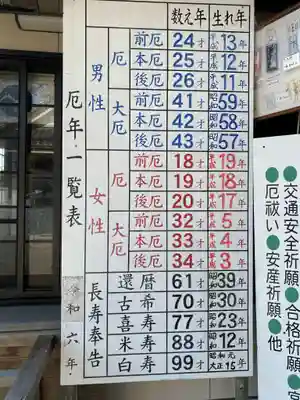 厄年一覧表
令和六年
数え年 生れ年
男性
厄
前厄 24才 平成13年
本厄 25才 平成12年
後厄 26才 平成11年
大厄
前厄 41才 昭和59年
本厄 42才 昭和58年
後厄 43才 昭和57年
女性
厄
前厄 18才 平成19年
本厄 19才 平成18年
後厄 20才 平成17年
大厄
前厄 32才 平成5年
本厄 33才 平成4年
後厄 34才 平成3年
長寿奉告
還暦 61才 昭和39年
古希 70才 昭和30年
喜寿 77才 昭和23年
米寿 88才 昭和12年
白寿 99才 昭和元 大正15年
●交通安全祈願●合格祈願●宮
●厄祓い●安産祈願●他